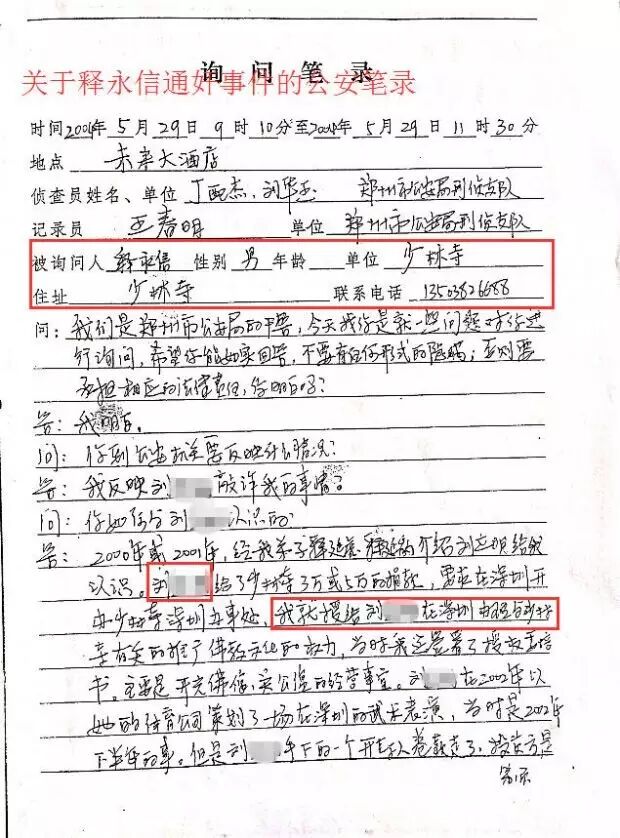 询问笔录
关于释永信通奸事件的公安笔录
时间2004年5月29日9时10分至2004年5月29日11时30分
地点 未来大酒店
侦查员姓名、单位 丁 杰、刘华玉 郑州市公安局刑侦支队
记录员 王春明 单位 郑州市公安局刑侦支队
被询问人 释永信 性别 男 年龄 单位 少林寺
住址 少林寺 联系电话 13503826688
问：我们是郑州市公安局的干警，今天我们是就一些问题对你进
行询问，希望你能如实回答，不要有任何形式的隐瞒；否则要
承担相应的法律责任，你明白吗？
答：我明白。
问：你到公安机关要反映什么情况？
答：我反映刘 敲诈我的事情？
问：你如何与刘 认识的
答：2000年或2001年，经我弟子释延 介绍刘 给我
认识。刘 给了少林寺3万或5万的捐款，要求在深圳开
办少林寺深圳办事处，我就授给刘 在深圳办理与少林
寺有关的推广佛教文化的权力，当时我还是签了授权委托
书。主要是开光佛像，卖公 的经营事宜。刘 在2002年以
她的体育公司策划了一场在深圳的武术表演，当时是2002年
下半年的事。但是刘 手下的一个 人卷款走了，投资方是